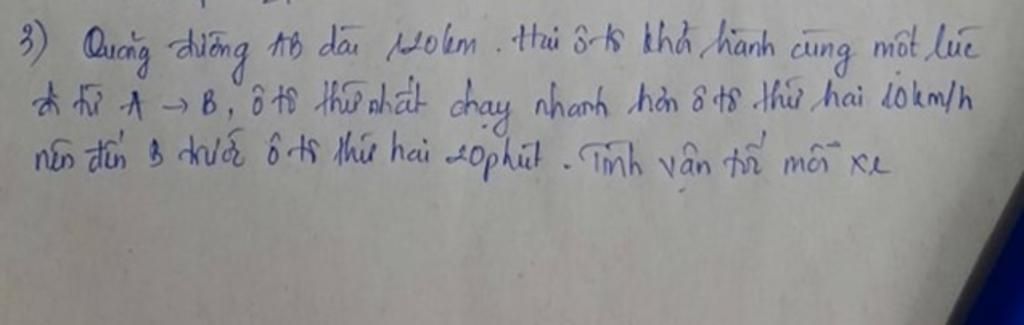 3) Quãng đường AB dài 120km. Hai ô tô khởi hành cùng một lúc
đi từ A → B, ô tô thứ nhất chạy nhanh hơn ô tô thứ hai 10km/h
nên đến B trước ô tô thứ hai 20phút. Tính vận tốc mỗi xe